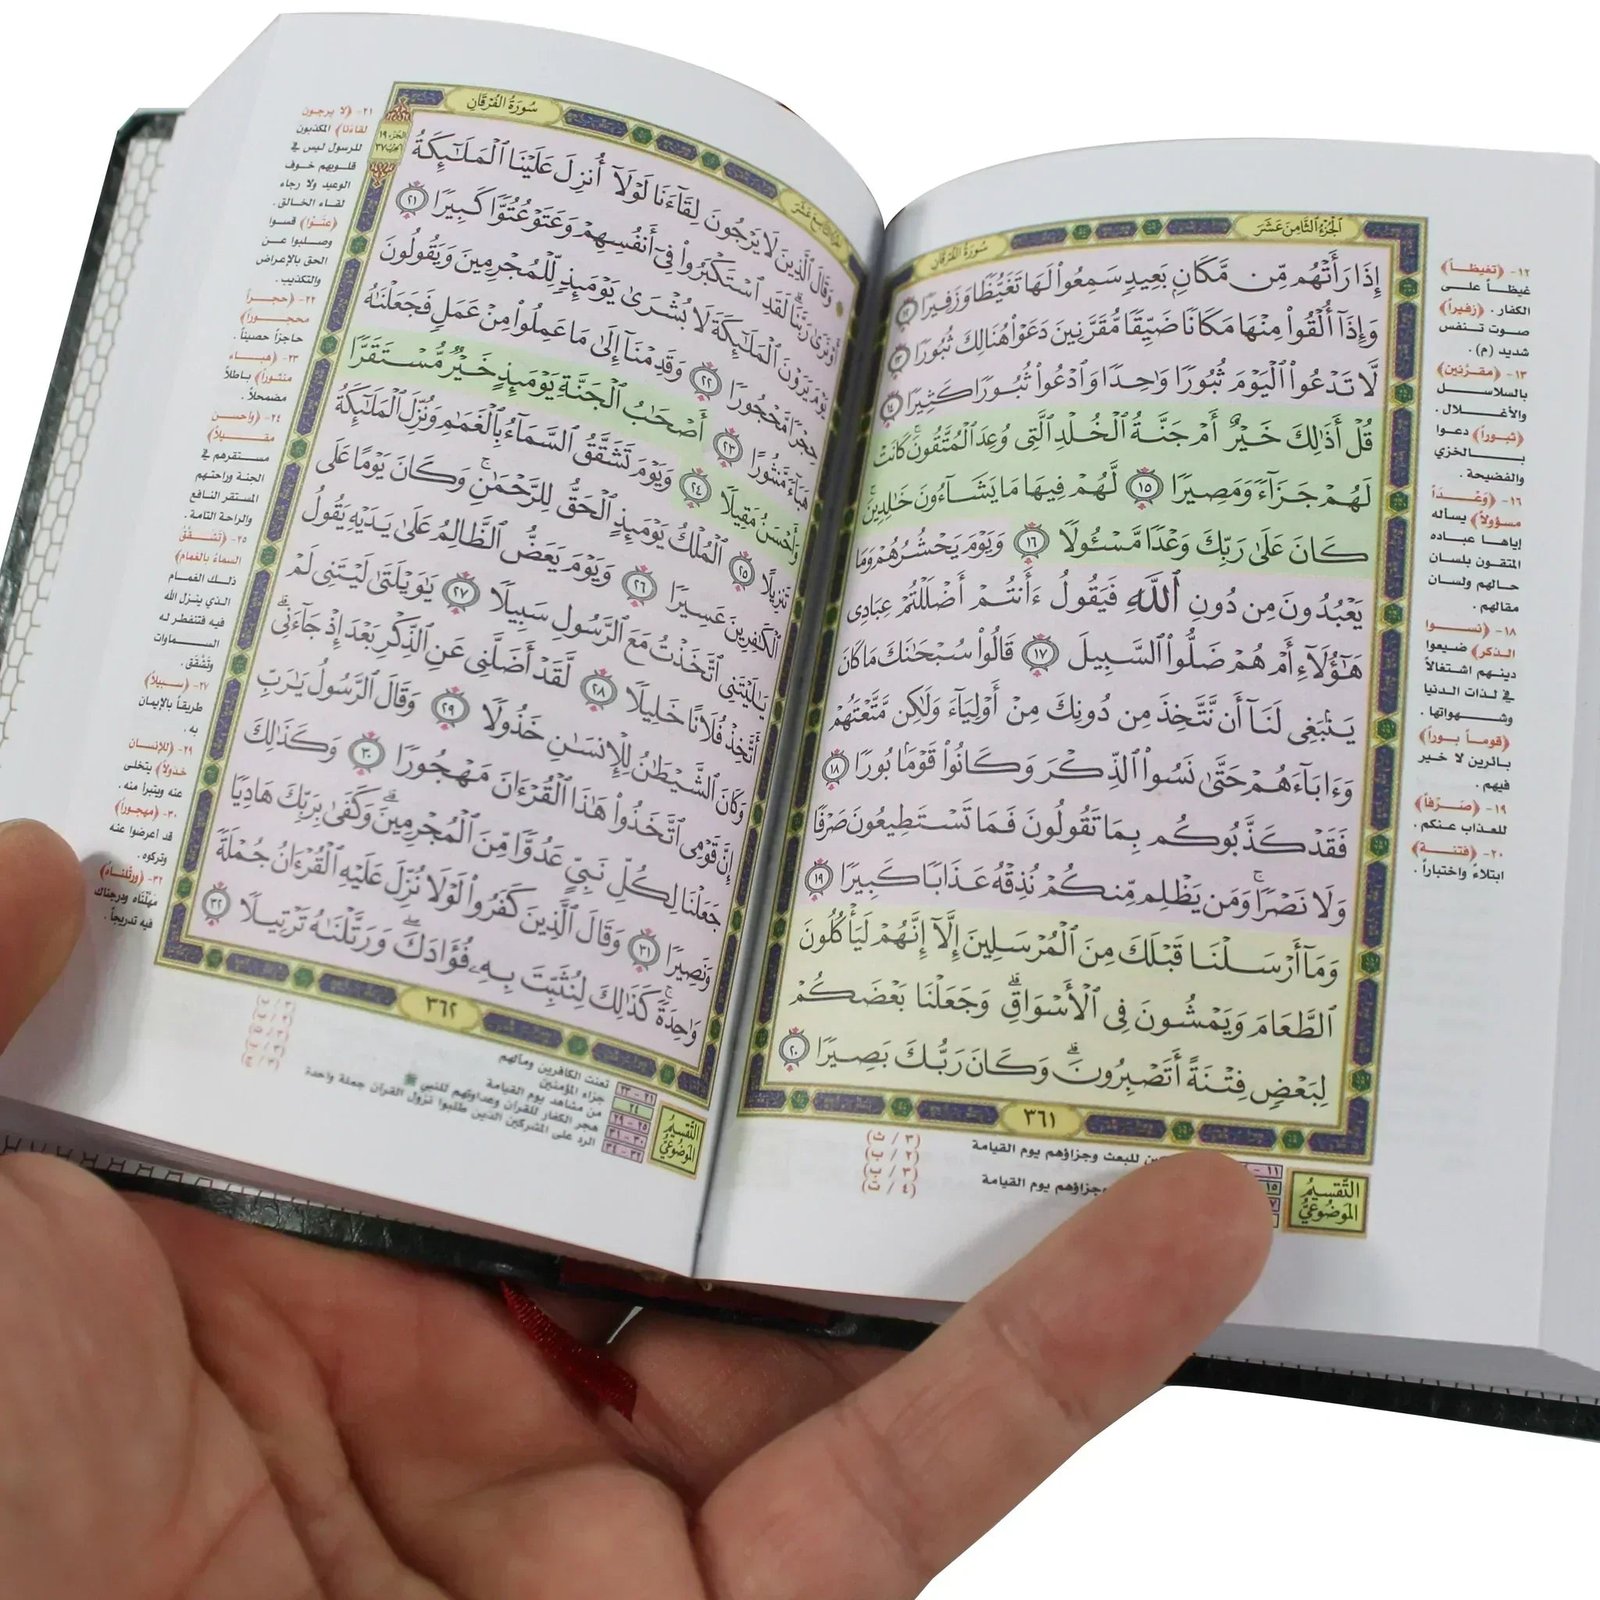 الجزء الثامن عشر
سورة الفرقان
إِذَا رَأَتْهُم مِّن مَّكَانٍ بَعِيدٍ سَمِعُوا۟ لَهَا تَغَيُّظًا وَزَفِيرًا ١٢
وَإِذَآ أُلْقُوا۟ مِنْهَا مَكَانًا ضَيِّقًا مُّقَرَّنِينَ دَعَوْا۟ هُنَالِكَ ثُبُورًا ١٣
لَّا تَدْعُوا۟ الْيَوْمَ ثُبُورًا وَٰحِدًا وَادْعُوا۟ ثُبُورًا كَثِيرًا ١٤
قُلْ أَذَٰلِكَ خَيْرٌ أَمْ جَنَّةُ الْخُلْدِ الَّتِى وُعِدَ الْمُتَّقُونَ ۚ كَانَتْ
لَهُمْ جَزَآءً وَمَصِيرًا ١٥ لَّهُمْ فِيهَا مَا يَشَآءُونَ خَٰلِدِينَ ۚ
كَانَ عَلَىٰ رَبِّكَ وَعْدًا مَّسْـُٔولًا ١٦ وَيَوْمَ يَحْشُرُهُمْ وَمَا
يَعْبُدُونَ مِن دُونِ اللَّهِ فَيَقُولُ ءَأَنتُمْ أَضْلَلْتُمْ عِبَادِى
هَٰٓؤُلَآءِ أَمْ هُمْ ضَلُّوا۟ السَّبِيلَ ١٧ قَالُوا۟ سُبْحَٰنَكَ مَا كَانَ
يَنۢبَغِى لَنَآ أَن نَّتَّخِذَ مِن دُونِكَ مِنْ أَوْلِيَآءَ وَلَٰكِن مَّتَّعْتَهُمْ
وَءَابَآءَهُمْ حَتَّىٰ نَسُوا۟ الذِّكْرَ وَكَانُوا۟ قَوْمًۢا بُورًا ١٨
فَقَدْ كَذَّبُوكُم بِمَا تَقُولُونَ فَمَا تَسْتَطِيعُونَ صَرْفًا
وَلَا نَصْرًا ۚ وَمَن يَظْلِم مِّنكُمْ نُذِقْهُ عَذَابًا كَبِيرًا ١٩
وَمَآ أَرْسَلْنَا قَبْلَكَ مِنَ الْمُرْسَلِينَ إِلَّآ إِنَّهُمْ لَيَأْكُلُونَ
الطَّعَامَ وَيَمْشُونَ فِى الْأَسْوَاقِ ۗ وَجَعَلْنَا بَعْضَكُمْ
لِبَعْضٍ فِتْنَةً أَتَصْبِرُونَ ۗ وَكَانَ رَبُّكَ بَصِيرًا ٢٠
٣٦١
١٢- ﴿تغيظاً﴾
غيظاً على
الكفار . ﴿زفيراً﴾
صوت تنفس
شديد (م).
١٣- ﴿مقرنين﴾
بالسلاسل
والأغلال .
﴿ثبوراً﴾ دعوا
بالخزي
والفضيحة .
١٦- ﴿وَعْداً
مسؤولاً﴾ يسأله
إياها عباده
المتقون بلسان
حالهم ولسان
مقالهم .
١٨- ﴿نسوا
الذكر﴾ ضيعوا
دينهم اشتغالاً
في لذات الدنيا
وشهواتها .
﴿قوماً بوراً﴾
بائرين لا خير
فيهم .
١٩- ﴿صَرْفاً﴾
للعذاب عنكم .
٢٠- ﴿فتنة﴾
ابتلاء واختباراً .
التقسيم
الموضوعي
للبعث وجزاؤهم يوم القيامة
وجزاؤهم يوم القيامة
سورة الفرقان
الجزء ١٩
الحزب ٣٧
وَقَالَ الَّذِينَ لَا يَرْجُونَ لِقَآءَنَا لَوْلَآ أُنزِلَ عَلَيْنَا الْمَلَٰٓئِكَةُ
أَوْ نَرَىٰ رَبَّنَا ۗ لَقَدِ اسْتَكْبَرُوا۟ فِىٓ أَنفُسِهِمْ وَعَتَوْ عُتُوًّا كَبِيرًا ٢١
يَوْمَ يَرَوْنَ الْمَلَٰٓئِكَةَ لَا بُشْرَىٰ يَوْمَئِذٍ لِّلْمُجْرِمِينَ وَيَقُولُونَ
حِجْرًا مَّحْجُورًا ٢٢ وَقَدِمْنَآ إِلَىٰ مَا عَمِلُوا۟ مِنْ عَمَلٍ فَجَعَلْنَٰهُ
هَبَآءً مَّنثُورًا ٢٣ أَصْحَٰبُ الْجَنَّةِ يَوْمَئِذٍ خَيْرٌ مُّسْتَقَرًّا
وَأَحْسَنُ مَقِيلًا ٢٤ وَيَوْمَ تَشَقَّقُ السَّمَآءُ بِالْغَمَٰمِ وَنُزِّلَ الْمَلَٰٓئِكَةُ
تَنزِيلًا ٢٥ الْمُلْكُ يَوْمَئِذٍ الْحَقُّ لِلرَّحْمَٰنِ ۚ وَكَانَ يَوْمًا عَلَى
الْكَٰفِرِينَ عَسِيرًا ٢٦ وَيَوْمَ يَعَضُّ الظَّالِمُ عَلَىٰ يَدَيْهِ يَقُولُ
يَٰلَيْتَنِى اتَّخَذْتُ مَعَ الرَّسُولِ سَبِيلًا ٢٧ يَٰوَيْلَتَىٰ لَيْتَنِى لَمْ
أَتَّخِذْ فُلَانًا خَلِيلًا ٢٨ لَّقَدْ أَضَلَّنِى عَنِ الذِّكْرِ بَعْدَ إِذْ جَآءَنِى ۗ
وَكَانَ الشَّيْطَٰنُ لِلْإِنسَٰنِ خَذُولًا ٢٩ وَقَالَ الرَّسُولُ يَٰرَبِّ
إِنَّ قَوْمِى اتَّخَذُوا۟ هَٰذَا الْقُرْءَانَ مَهْجُورًا ٣٠ وَكَذَٰلِكَ
جَعَلْنَا لِكُلِّ نَبِىٍّ عَدُوًّا مِّنَ الْمُجْرِمِينَ ۗ وَكَفَىٰ بِرَبِّكَ هَادِيًا
وَنَصِيرًا ٣١ وَقَالَ الَّذِينَ كَفَرُوا۟ لَوْلَا نُزِّلَ عَلَيْهِ الْقُرْءَانُ جُمْلَةً
وَٰحِدَةً ۚ كَذَٰلِكَ لِنُثَبِّتَ بِهِۦ فُؤَادَكَ ۖ وَرَتَّلْنَٰهُ تَرْتِيلًا ٣٢
٣٦٢
٢١- ﴿لا يرجون
لقاءنا﴾ المكذبون
للرسول ليس في
قلوبهم خوف
الوعيد ولا رجاء
لقاء الخالق .
﴿عتوا﴾ قسوا
وصلبوا عن
الحق بالإعراض
والتكذيب.
٢٢- ﴿حجراً
محجوراً﴾
حاجزاً حصيناً .
٢٣- ﴿هباء
منثوراً﴾ باطلاً
مضمحلاً .
٢٤- ﴿وأحسن
مقيلاً﴾
مستقرهم في
الجنة وراحتهم
المستقر النافع
والراحة التامة .
٢٥- ﴿تَشَقَّقُ
السماءُ بالغمام﴾
ذلك الغمام
الذي ينزل الله
فيه فتنفطر له
السماوات
وتَشَقَّق .
٢٧- ﴿سبيلاً﴾
طريقاً بالإيمان
به .
٢٩- ﴿للإنسان
خذولاً﴾ يتخلى
عنه ويتبرا منه .
٣٠- ﴿مهجوراً﴾
قد أعرضوا عنه
وتركوه .
٣٢- ﴿ورتلناه﴾
مَهَّلْنَاه ودرجناك
فيه تدريجاً .
التقسيم
الموضوعي
٢١ - ٢٣ تعنت الكافرين ومآلهم
٢٤ جزاء المؤمنين
٢٥ - ٢٩ من مشاهد يوم القيامة
٣٠ - ٣١ هجر الكفار للقرآن وعداوتهم للنبي ﷺ
٣٢ - ٣٤ الرد على المشركين الذين طلبوا نزول القرآن جملة واحدة